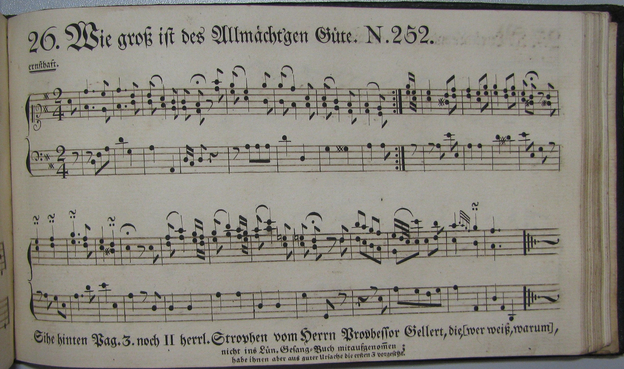 26. Wie groß ist des Allmächt'gen Güte. N.252.
ernsthaft.
Sihe hinten Pag. 3. noch II herrl. Strophen vom Herrn Prophessor Gellert, die, (wer weiß, warum),
nicht ins Lün. Gesang-Buch mitaufgenom̄en;
habe ihnen aber aus guter Ursache die ersten 3 vorgesetzt.